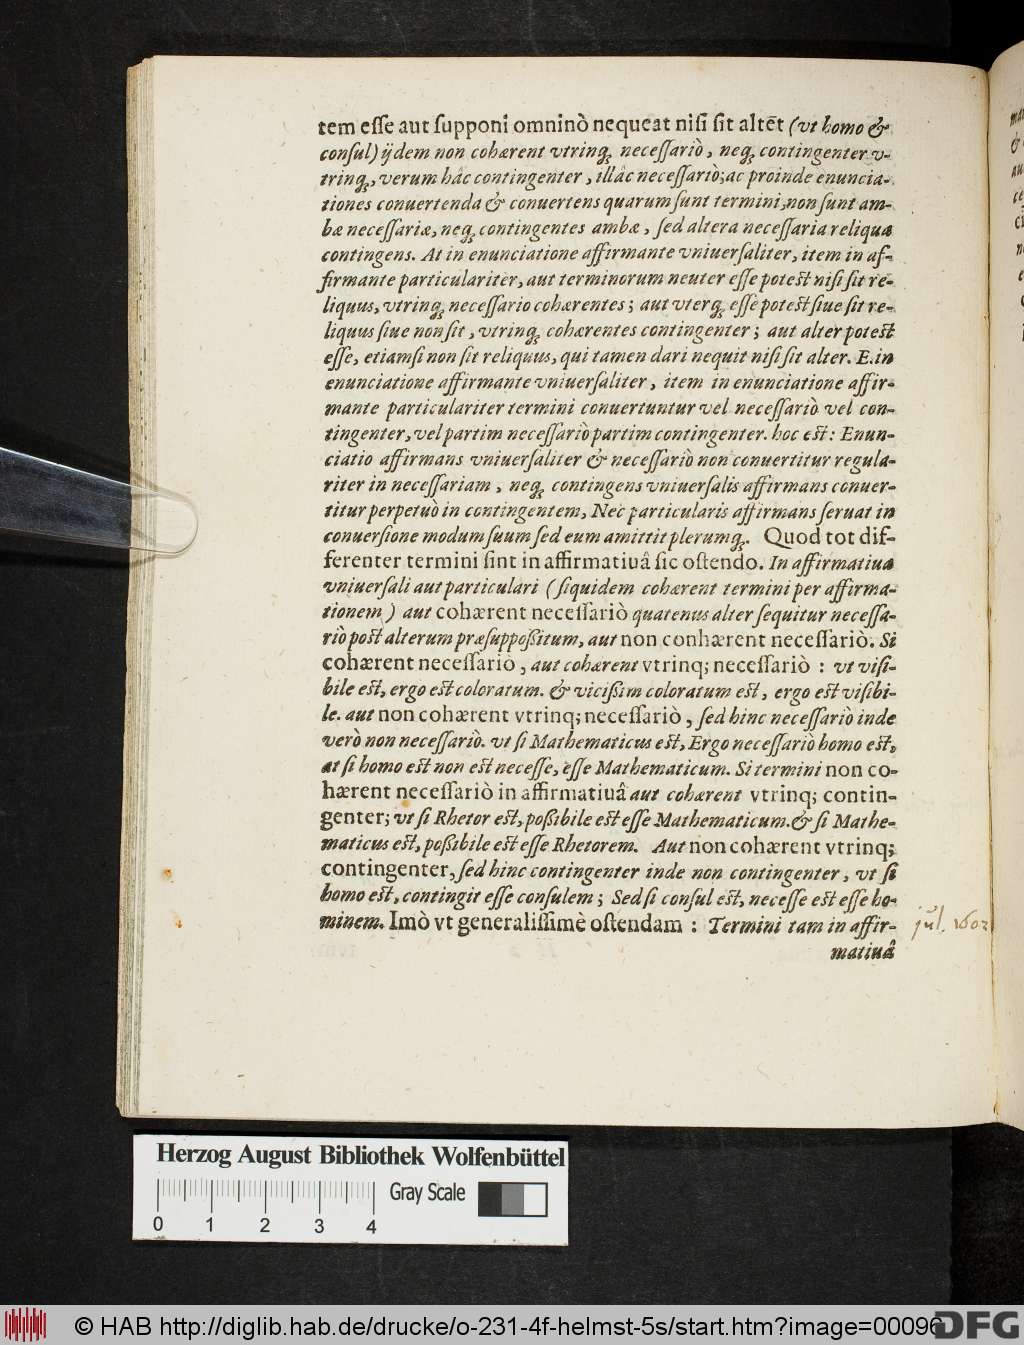 tem eſſe aut ſupponi omninò nequeat niſi ſit altēt (vt homo &
conſul) ijdem non cohærent vtrinq; neceſſariò, neq; contingenter v-
trinq;, verum hâc contingenter, illâc neceſſariò; ac proinde enuncia-
tiones conuertenda & conuertens quarum ſunt termini, non ſunt am-
bæ neceſſariæ, neq; contingentes ambæ, ſed altera neceſſaria reliqua
contingens. At in enunciatione affirmante vniuerſaliter, item in af-
firmante particulariter, aut terminorum neuter eſſe poteſt niſi ſit re-
liquus, vtrinq; neceſſario cohærentes; aut vterq; eſſe poteſt ſiue ſit re-
liquus ſiue non ſit, vtrinq; cohærentes contingenter; aut alter poteſt
eſſe, etiamſi non ſit reliquus, qui tamen dari nequit niſi ſit alter. E. in
enunciatione affirmante vniuerſaliter, item in enunciatione affir-
mante particulariter termini conuertuntur vel neceſſariò vel con-
tingenter, vel partim neceſſariò partim contingenter. hoc eſt: Enun-
ciatio affirmans vniuerſaliter & neceſſariò non conuertitur regula-
riter in neceſſariam, neq; contingens vniuerſalis affirmans conuer-
titur perpetuò in contingentem, Nec particularis affirmans ſeruat in
conuerſione modum ſuum ſed eum amittit plerumq;. Quod tot dif-
ferenter termini ſint in affirmatiuâ ſic oſtendo. In affirmatiua
vniuerſali aut particulari (ſiquidem cohærent termini per affirma-
tionem) aut cohærent neceſſariò quatenus alter ſequitur neceſſa-
riò poſt alterum præſuppoßitum, aut non conhærent neceſſariò. Si
cohærent neceſſario, aut cohærent vtrinq; neceſſariò: vt viſi-
bile eſt, ergo eſt coloratum. & vicißim coloratum eſt, ergo eſt viſibi-
le. aut non cohærent vtrinq; neceſſariò, ſed hinc neceſſariò inde
verò non neceſſariò. vt ſi Mathematicus eſt, Ergo neceſſariò homo eſt,
at ſi homo eſt non eſt neceſſe, eſſe Mathematicum. Si termini non co-
hærent neceſſariò in affirmatiuâ aut cohærent vtrinq; contin-
genter; vt ſi Rhetor eſt, poßibile eſt eſſe Mathematicum. & ſi Mathe-
maticus eſt, poßibile eſt eſſe Rhetorem. Aut non cohærent vtrinq;
contingenter, ſed hinc contingenter inde non contingenter, vt ſi
homo eſt, contingit eſſe conſulem; Sed ſi conſul eſt, neceſſe eſt eſſe ho-
minem. Imò vt generaliſſimè oſtendam: Termini tam in affir-
matiuâ
jul. 1602
Herzog August Bibliothek Wolfenbüttel
Gray Scale
0 1 2 3 4
© HAB http://diglib.hab.de/drucke/o-231-4f-helmst-5s/start.htm?image=00096
DFG